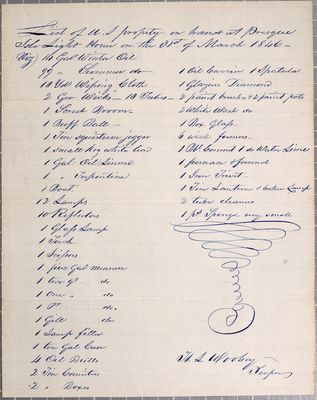 List of U.S property on hand at Presque
Isle Light House on the 31st of March 1846 -
(Viz) 14 Gal Winter Oil
99 " Summer do
10 Yds Wipsing Cloth
2 Gro Wicks - 10 Tubes -
1 Broom
1 Buff
1 Tin
1 small keg white lead
1 Gal Oil Linseed
1 " Turpentine
1 Boat
12 Lamps
10 Reflectors
1 Glass Lamp
1 Torch
1 Scisors
1 five Gal Measure
1 two qt do
1 One " do
1 Pt do.
1 Gill do
1 Lamp filler
1 ten Gal Cann
4 Oil Butts
2 Tin Canisters
2 " Boxes
1 Oil Carrier 1 Spatula
1 Glaziers Diamond
2 paint brushes & 2 paint pots
2 White Wash do
1 Box Glass
6 wick formers
1 Bbl Cement 1 do Water Lime
1 furnace & funnel
1 Iron Trivit
1 Tin Lantern & broken Lamp
2 tube cleaners
1 pc Sponge very small
H L Woolsey
Keeper